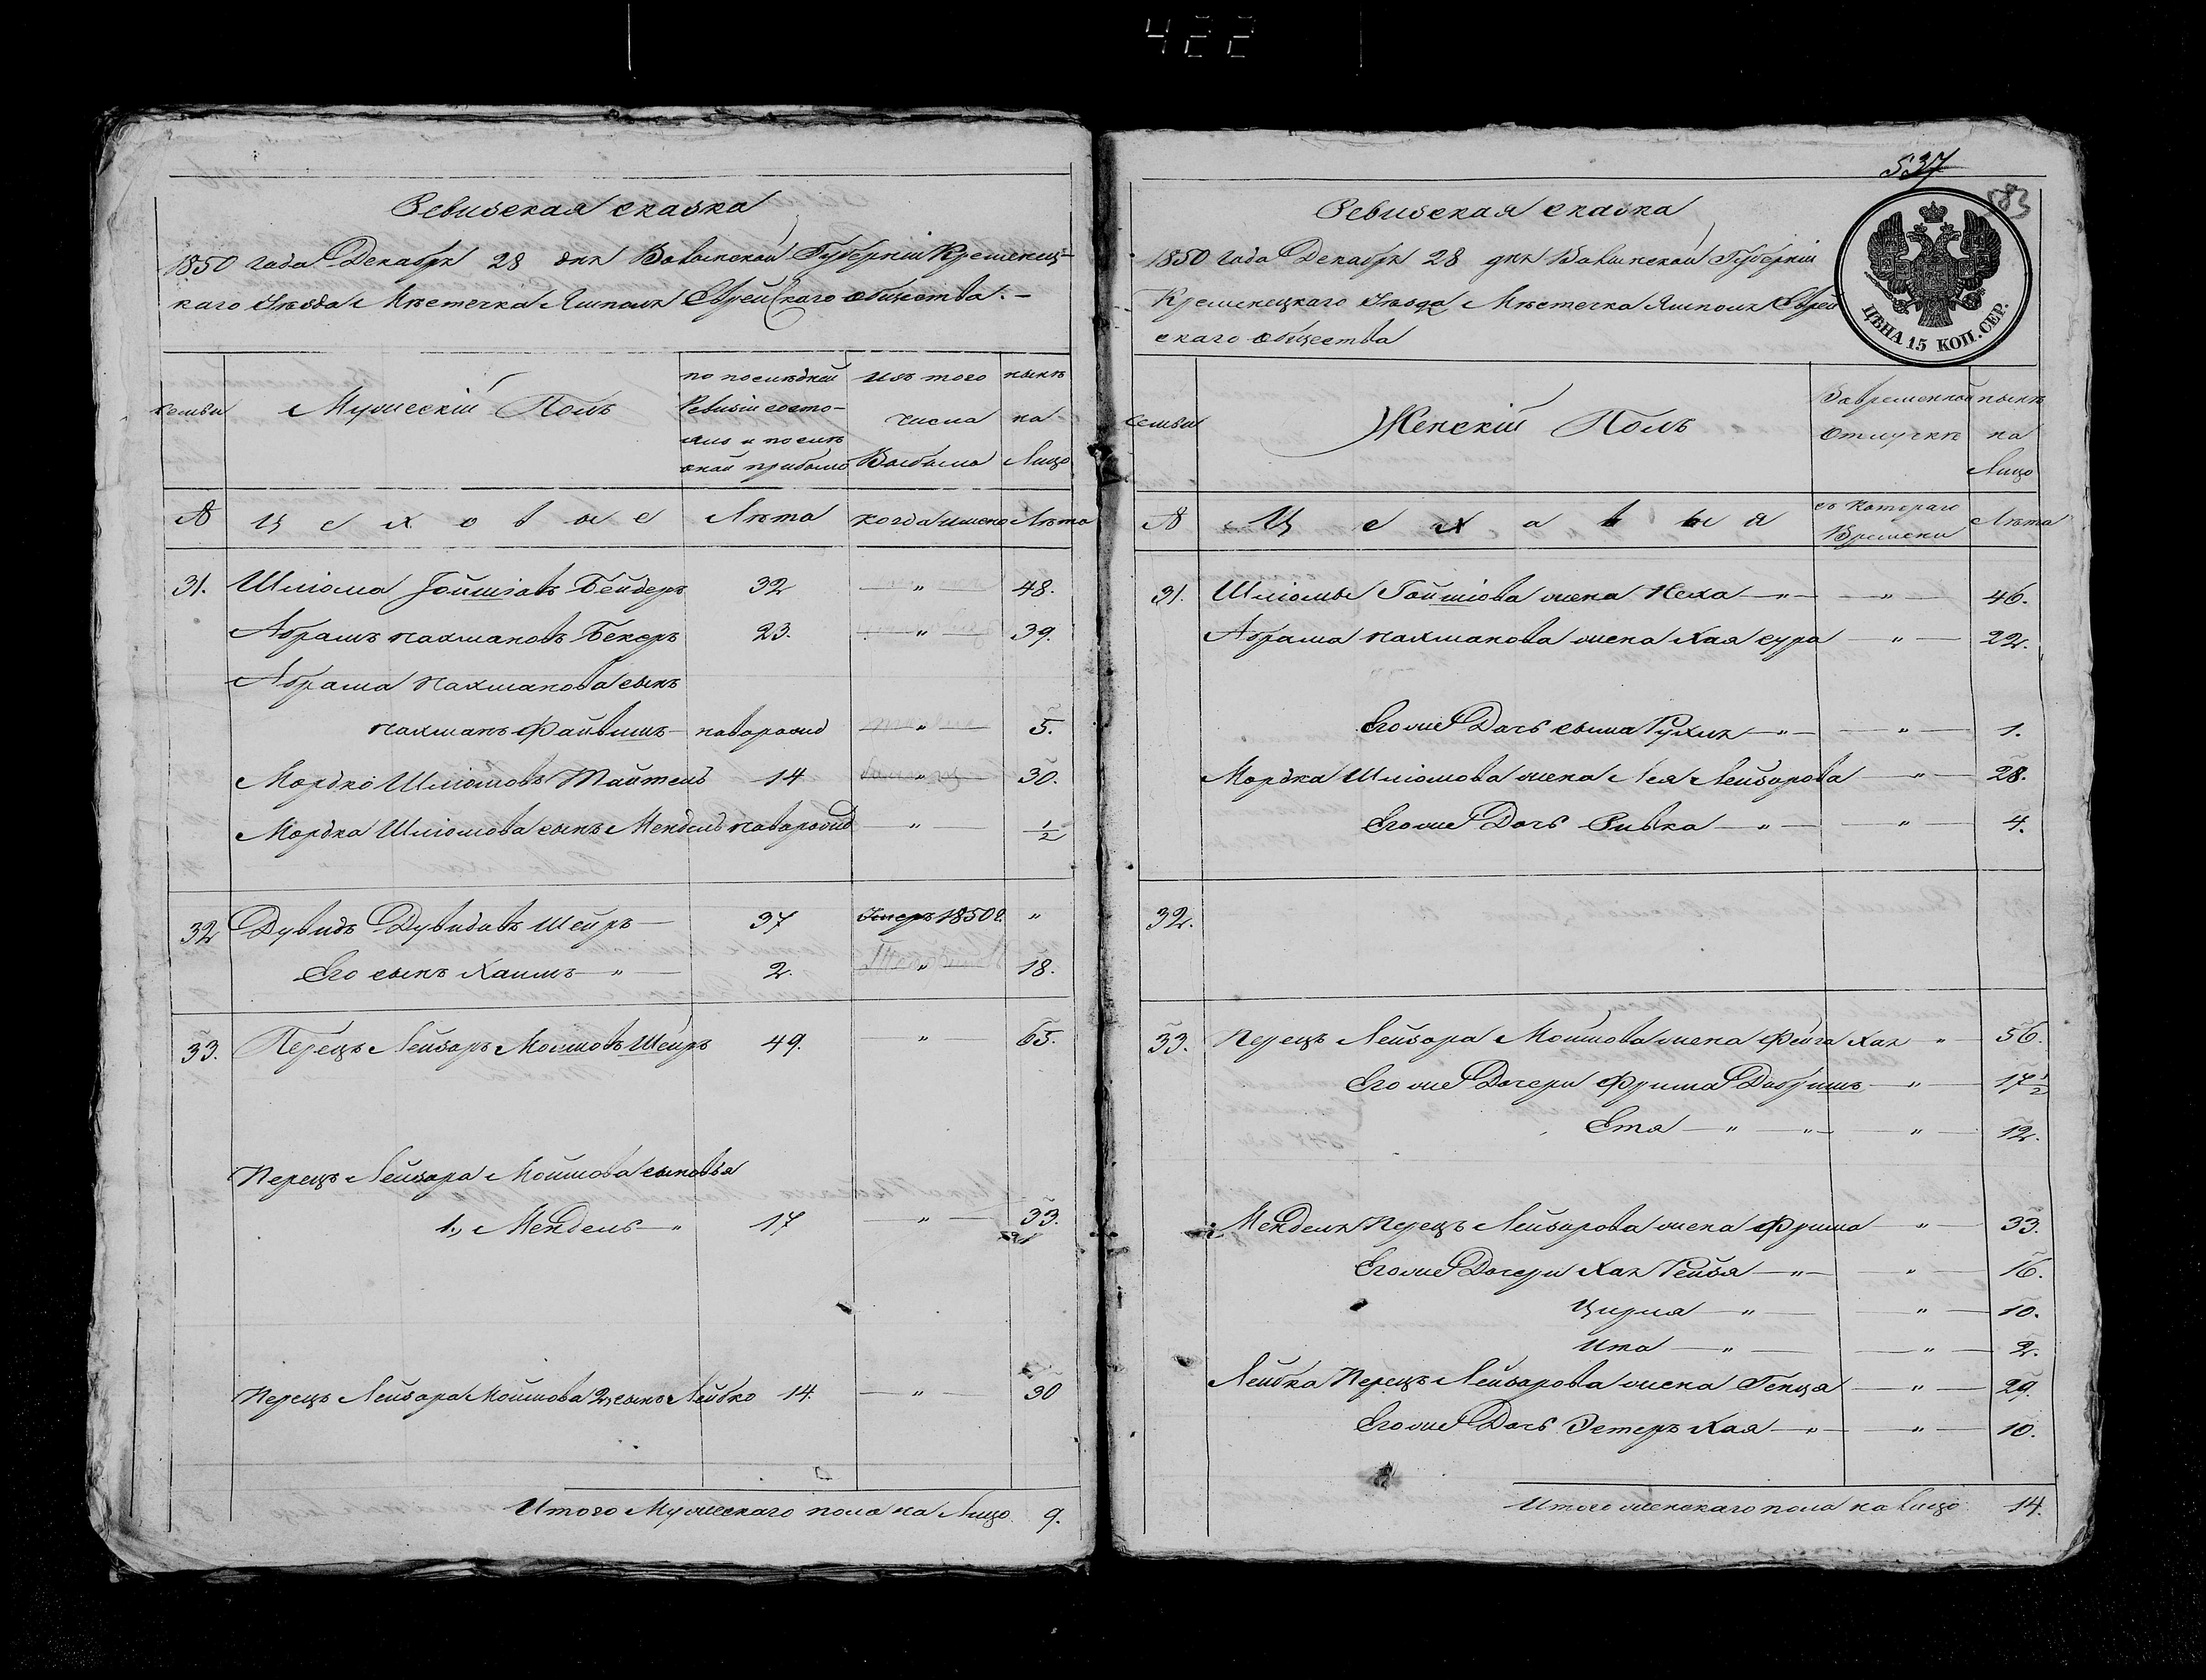 422
Ревизская сказка
1850 года Декабря 28 дня Волынской Губерніи Кременец-
каго Уѣзда Мѣстечка Ямполя Еврейскаго общества. –
семьи
Мужескій Полъ
по послѣдней
Ревизіи состо-
яло и послѣ
оной прибыло
Изъ того
числа
Выбыло
нынѣ
на
Лицо
№
Цеховые
Лѣта
когда имено
Лѣта
31. Шліома Іойшіовъ Бейдеръ 32 — " — 48.
Абрамъ нахмановъ Бекеръ 23. — " — 39.
Абрама Нахманова сынъ
нахманъ Файвишъ – новорожд — " — 5.
Мордко Шліомовъ Тайтель 14 — " — 30.
Мордка Шліомова сынъ Мендель новорожд " — 1/2
32 Дувидъ Дувидовъ Шейръ — 37 Умеръ 1850 г. "
Его сынъ Хаимъ – " — 2. " 18.
33. Перецъ Лейзоръ Мошковъ Шейръ 49. — " — 65.
Перецъ Лейзора Мошкова сыновья
1., Мендель – " 17 — " — 33.
Перецъ Лейзора Мошкова 2, сынъ Лейбко 14. — " — 30
Итого Мужескаго пола на Лицо 9.
537
583
ЦѢНА 15 КОП. СЕР.
Ревизская сказка
1850 Года Декабря 28 дня Волынской Губерніи
Кременецкаго Уѣзда Мѣстечка Ямполя Еврей
скаго общества
семьи
Женскій Полъ
Вовременной
отлучкѣ
нынѣ
на
Лицо
№
Цеховыя
съ котораго
Времени
Лѣта
31. Шліомы Гойшіова жена Неха — " — — " — 46.
Абрама нахманова жена Хая сура — " — 22.
Его же Дочь сыма Рухля — " — — " — 1.
Мордка Шліомова жена Лея Лейзорова — " — 28.
Его же Дочь Ривка — " — — " — 4.
32.
33. Перецъ Лейзора Мошкова жена Фейга Хая " — 56.
Его же Дочери Фрима Добришъ — " — 17 1/2
Етя — " — " — " — 12.
Менделя Перецъ Лейзорова жена Фрима " — 33.
Его же Дочери Хая Рейзя — " — " — 16.
Цирля — " — — " — 10.
Ита — " — — " — 2.
Лейбка Перецъ Лейзорова жена Генця — " — 29.
Его же Дочь Эстеръ Хая — " — — " — 10.
Итого женскаго пола на лицо 14.